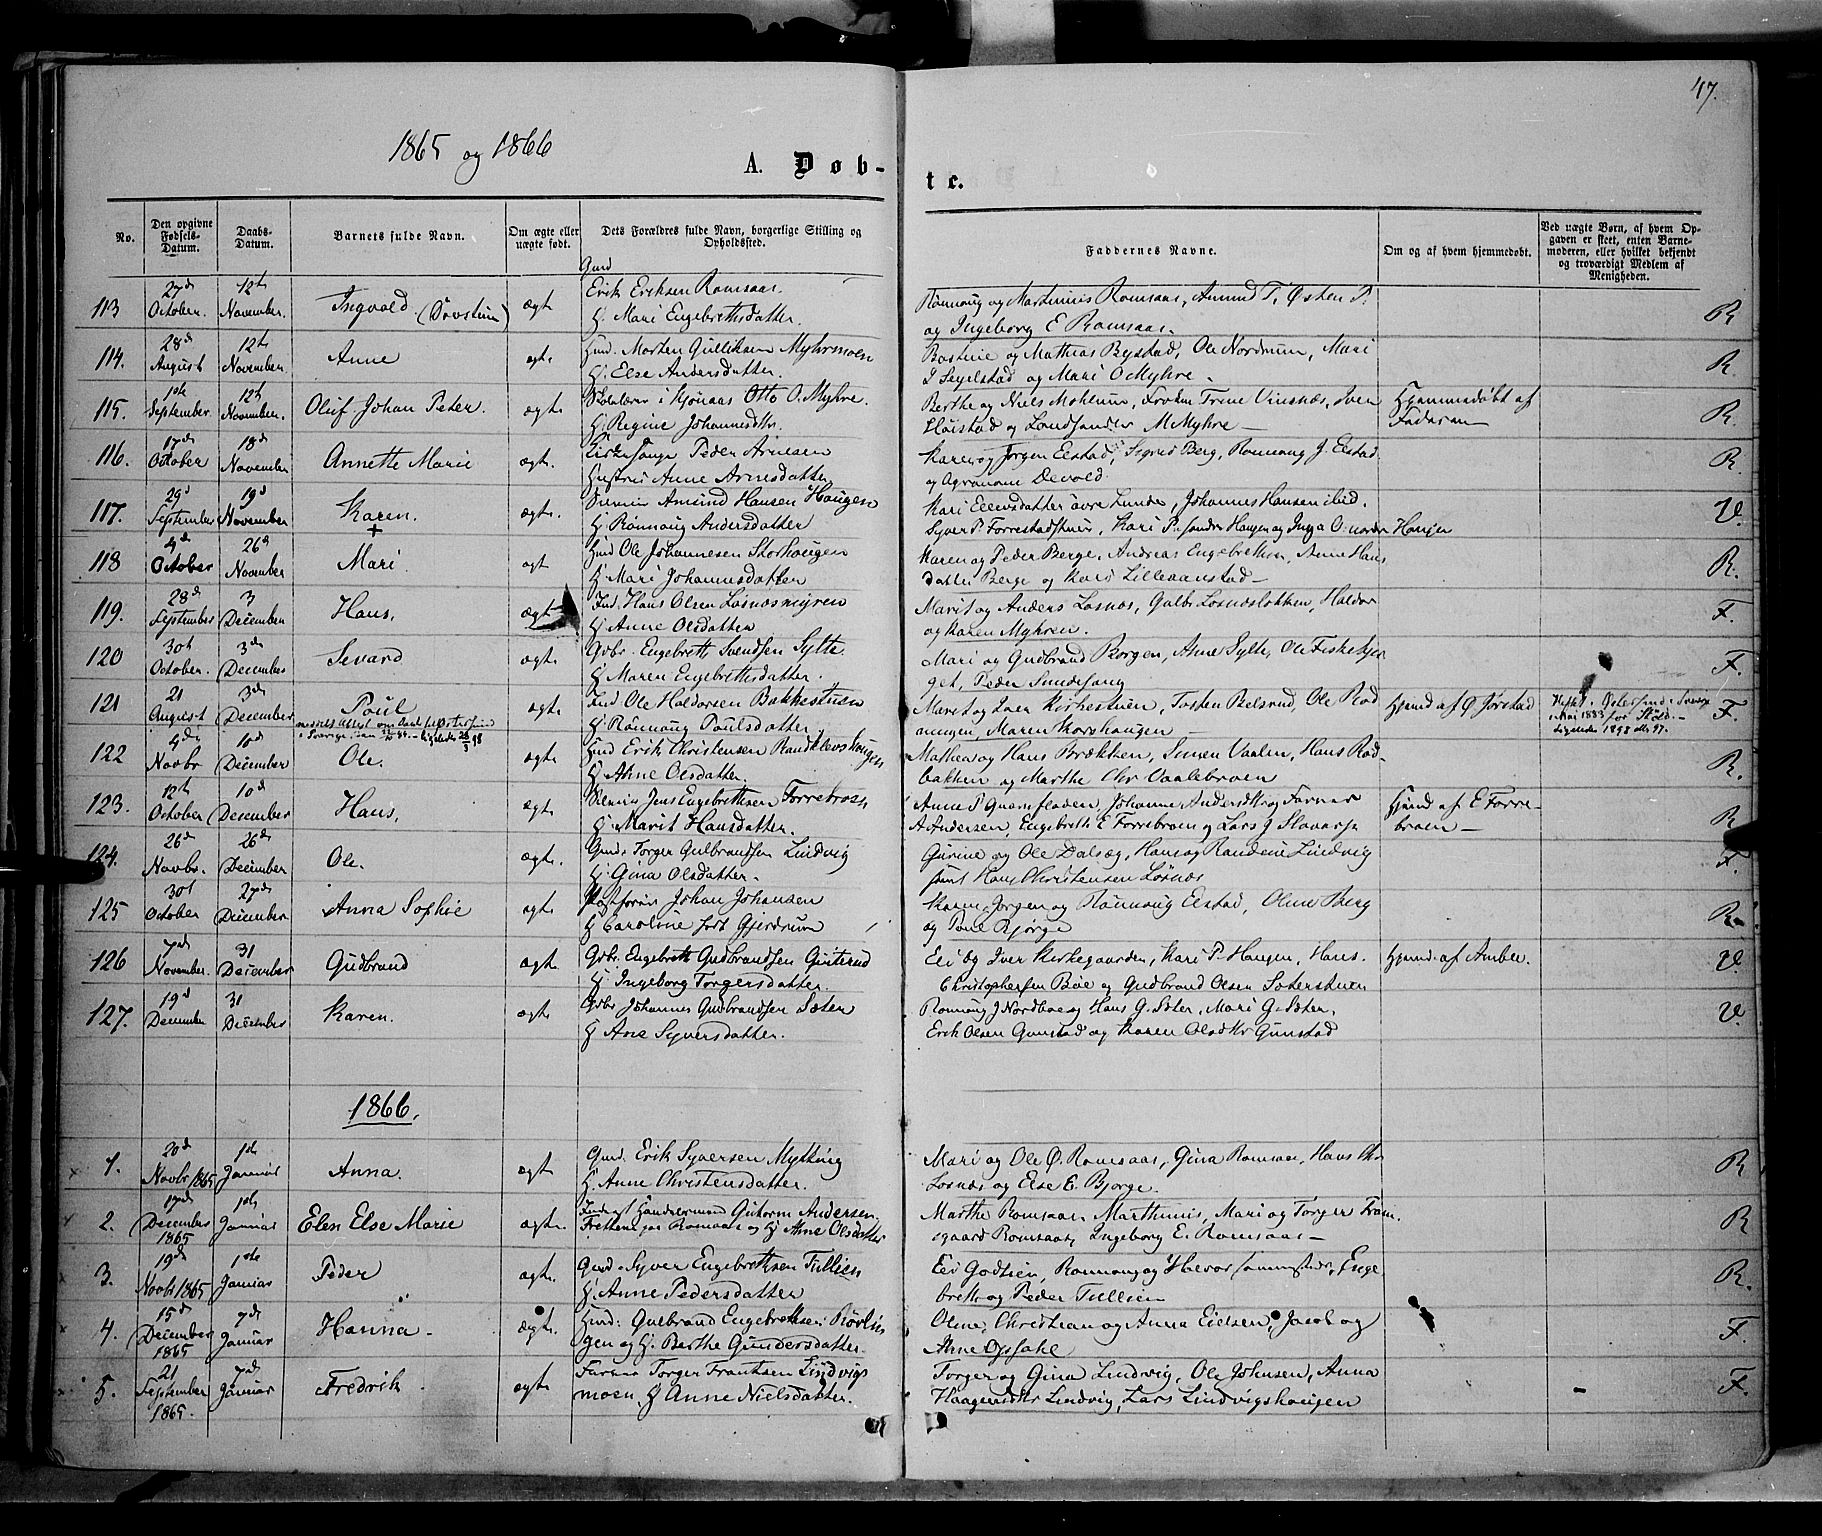 47.
1865 og 1866
A. Døb-
te.
No.
Den opgivne Fødsels-Datum.
Daabs-Datum.
Barnets fulde Navn.
Om ægte eller uægte født.
Dets Forældres fulde Navn, borgerlige Stilling og Opholdssted.
Faddernes Navne.
Om og af hvem hjemmedøbt.
Ved uægte Børn, af hvem Opgaven er skeet, enten Barnemoderen, eller hvilket bekjendt og troværdigt Medlem af Menigheden.
113 27de October. 12te November. Ingvald ægt Gmd Erik Eriksen Romsaas. H. Mari Engebrethsdatter. Rønnaug og Marthinus Romsaas, Amund T. Østen P. og Ingeborg E Romsaas. R
114. 28de August 12te November Anne ægt Hmd. Morten Gulliksen Myhrmoen H. Else Andersdatter. og Mathias Bystad, Ole Nordrum, Mari Segelstad og Mari O Myhre. R.
115. 1ste September. 12te November. Oluf Johan Peter. ægt. Skolelærer i Kjønaas Otto O. Myhre. H. Regine Johannesdtr. Berthe og Niels Mohlum, Trine Vinsnæs, Iver Høistad og M Myhre Hjemmedøbt af Faderen R.
116. 17de October 18de November Annette Marie ægt. Kirkesanger Peder Arnesen Hustru Anne Arnesdatter Karen og Jørgen Elstad, Sigrid Berg, Rønnaug J. Elstad. og Agronom Devold. R.
117. 29de September 19de November Karen. + ægt. Amund Hansen Haugen H. Rønnaug Andersdatter Kari øvre Lunde, Johannes Hansen ibid. Syver P. Forrestadstuen, Kari P. søndre Haugen og Inga O. nordre Haugen V.
118 4de October 26de November Mari. ægt Hmd Ole Johannesen Storhaugen H. Mari Johannesdatter Karen og Peder Berge, Andreas Engebrethsen, Anne Hans datter Berge og Kari Lilleaanstad R.
119. 28de September 3 December Hans, ægt Ind. Hans Olsen Losnæsmyren H. Anne Olsdatter Marit og Anders Losnæs, Gulbr. Losnæsløkken, Haldor og Karen Myhren. F.
120 30te October. 3de December Sevard ægt. Gbr. Engebreth Svendsen Sylte. H. Maren Engebrethsdatter. Mari og Gudbrand Borgen, Anne Sylte, Ole Fiskebjer get, Peder Sundesang F.
121 21 August 3de December Poul ægt. Ind Ole Haldorsen Bakkestuen H. Rønnaug Poulsdatter. Marit og Loer Kirkestuen, Torsten Belsrud, Ole Rod aningen, Maren Storshaugen Hjemd af Ø Jørstad F.
122 4de Novbr 10de December Ole. ægt. Hmd Erik Christensen Randklevshaugen H. Anne Olsdatter. Mathea og Hans Brækken, Simen Vaalen, Hans Rod bakken og Marthe Chr Vaalebroen R.
123. 12te October 10de December Hans, ægt Jens Engebrethsen Forrebroen H. Marit Hansdatter. Anne P. Johanne A Andersen, Engebreth E Forrebroen og Lars J Hjemd af E Forre- broen R
124. 26de Novbr. 26de December Ole. ægte. Gmd. Torger Gulbrandsen Lindvig H. Gina Olsdatter. Gurine og Ole Dalsæg, Hans og Randine Lindvig samt Hans Christensen Losnæs F.
125 30te October 27de December Anna Sophie ægt Johan Johansen H Caroline født Gjerdrum Karen, Jørgen og Rønnaug Elstad, Oline Berg og Bjørge R.
126 7de November. 31 December Gudbrand ægt. Gbr. Engebreth Gudbrandsen H. Ingeborg Torgersdatter. Eli og Iver Kirkegaarden, Kari P. Haugen, Hans Christophersen Bøe og Gudbrand Olsen Sæterstuen Hjemd. af V.
127. 19de December 31 December Karen. ægt. Gbr Johannes Gudbrandsen Sæter H. Ane Syversdatter. Rønnaug J Nordboe og Hans G. Sæter, Mari G. Sæter, Erik Olsen Gunstad og Karen Olsdtr Gunstad V.
1866.
1. 20de Novbr 1865 1ste Januar Anna. ægt Gmd. Erik Syversen Mytting H. Anne Christensdatter. Mari og Ole Ø. Romsaas, Gina Romsaas, Hans Losnæs og Else E. Bjørge. R
2. 17de December 1865 1ste Januar Elen Else Marie ægt. Andersen. Romsaas og H Anne Olsdatter Marthe Romsaas, Marthinus, Mari og Torger Fram- sgaard Romsaas, Ingeborg E. Romsaas R
3. 19de Novbr 1865 1ste Januar Peder ægt. Gmd. Syver Engebrethsen Tullien H. Anne Pedersdatter Eli Godlien, Rønnaug og Halvor Enge breth og Peder Tullien R.
4. 15de December 1865 7de Januar Hanna. ægt. Hmd: Gulbrand Engebrethsen: gen og H. Berthe Gundersdatter. Oline, Christian og Anna Eielsen, Jacob og Ahne Opsahl F.
5. 21 September 1865. 7de Januar Fredrik ægt Torger Frantsen Lindvigs moen, H Anne Nielsdatter. Torger og Gina Lindvig, Ole Johnsen, Anna Haagensdtr Lindvig, Lars Lindvigshaugen F.